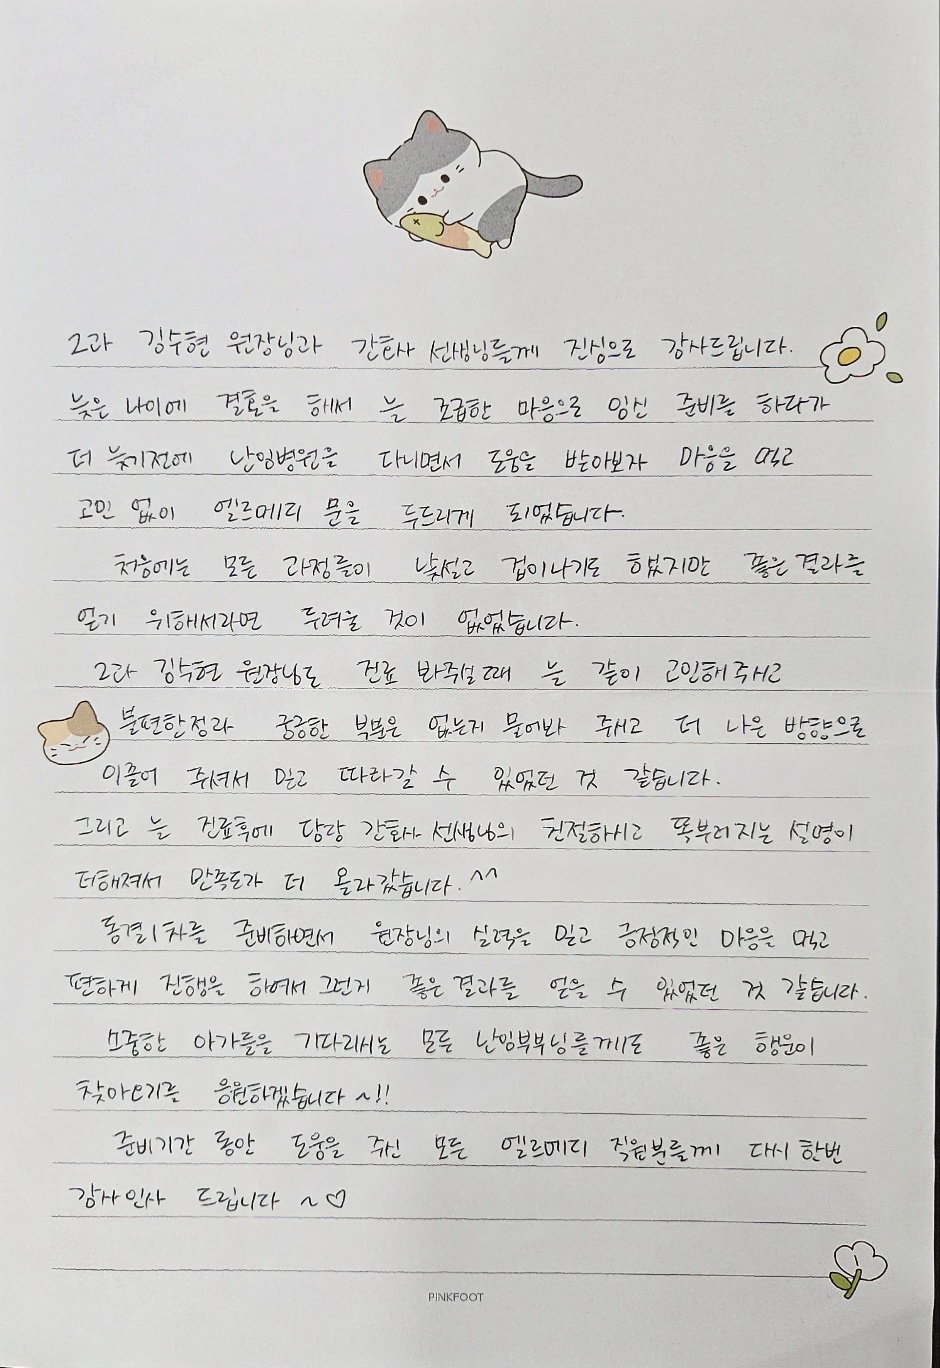 2과 김수현 원장님과 간호사 선생님들께 진심으로 감사드립니다.
늦은 나이에 결혼을 해서 늘 조급한 마음으로 임신 준비를 하다가
더 늦기전에 난임병원을 다니면서 도움을 받아보자 마음을 먹고
고민 없이 엘르메디 문을 두드리게 되었습니다.
처음에는 모든 과정들이 낯설고 겁이나기도 하였지만 좋은결과를
얻기 위해서라면 두려울 것이 없었습니다.
2과 김수현 원장님도 진료 봐주실때 늘 같이 고민해주시고
불편한점과 궁금한 부분은 없는지 물어봐 주시고 더 나은 방향으로
이끌어 주셔서 믿고 따라갈 수 있었던 것 같습니다.
그리고 늘 진료후에 담당 간호사 선생님의 친절하시고 똑부러지는 설명이
더해져서 만족도가 더 올라갔습니다. ^^
동결1차를 준비하면서 원장님의 실력을 믿고 긍정적인 마음을 먹고
편하게 진행을 하여서 그런지 좋은결과를 얻을 수 있었던 것 같습니다.
소중한 아가들을 기다리시는 모든 난임부부님들께도 좋은 행운이
찾아오기를 응원하겠습니다 ~!!
준비기간 동안 도움을 주신 모든 엘르메디 직원분들께 다시한번
감사인사 드립니다 ~♡
PINKFOOT